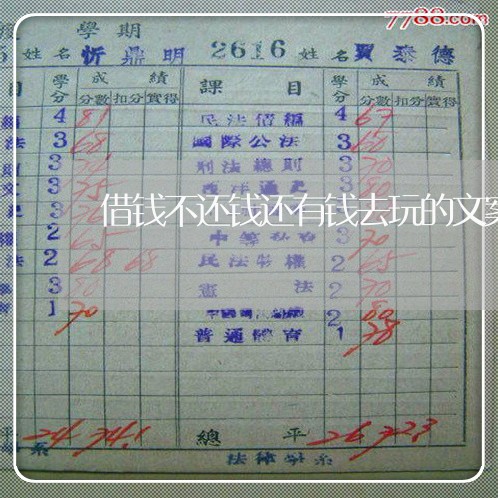 7788.com
學期
姓名 忻鼎明 2616 姓名 賈泰德
目 學分 成績 課目 學分 成績
分數 扣分 實得 分數 扣分 實得
4 81 民法債編 4 67
法 3 68 國際公法 3 60
3 刑法總則 3 70
3 75 西洋通史 3 80
借钱不还钱还有钱去玩的文案
2 65 3 70
法 2 68 68 民法物權 2 65
3 80 憲法 2 70
1 70 2 80
普通體育 1 78
平 24 74.1 總平 26 72.3
系 法律學系